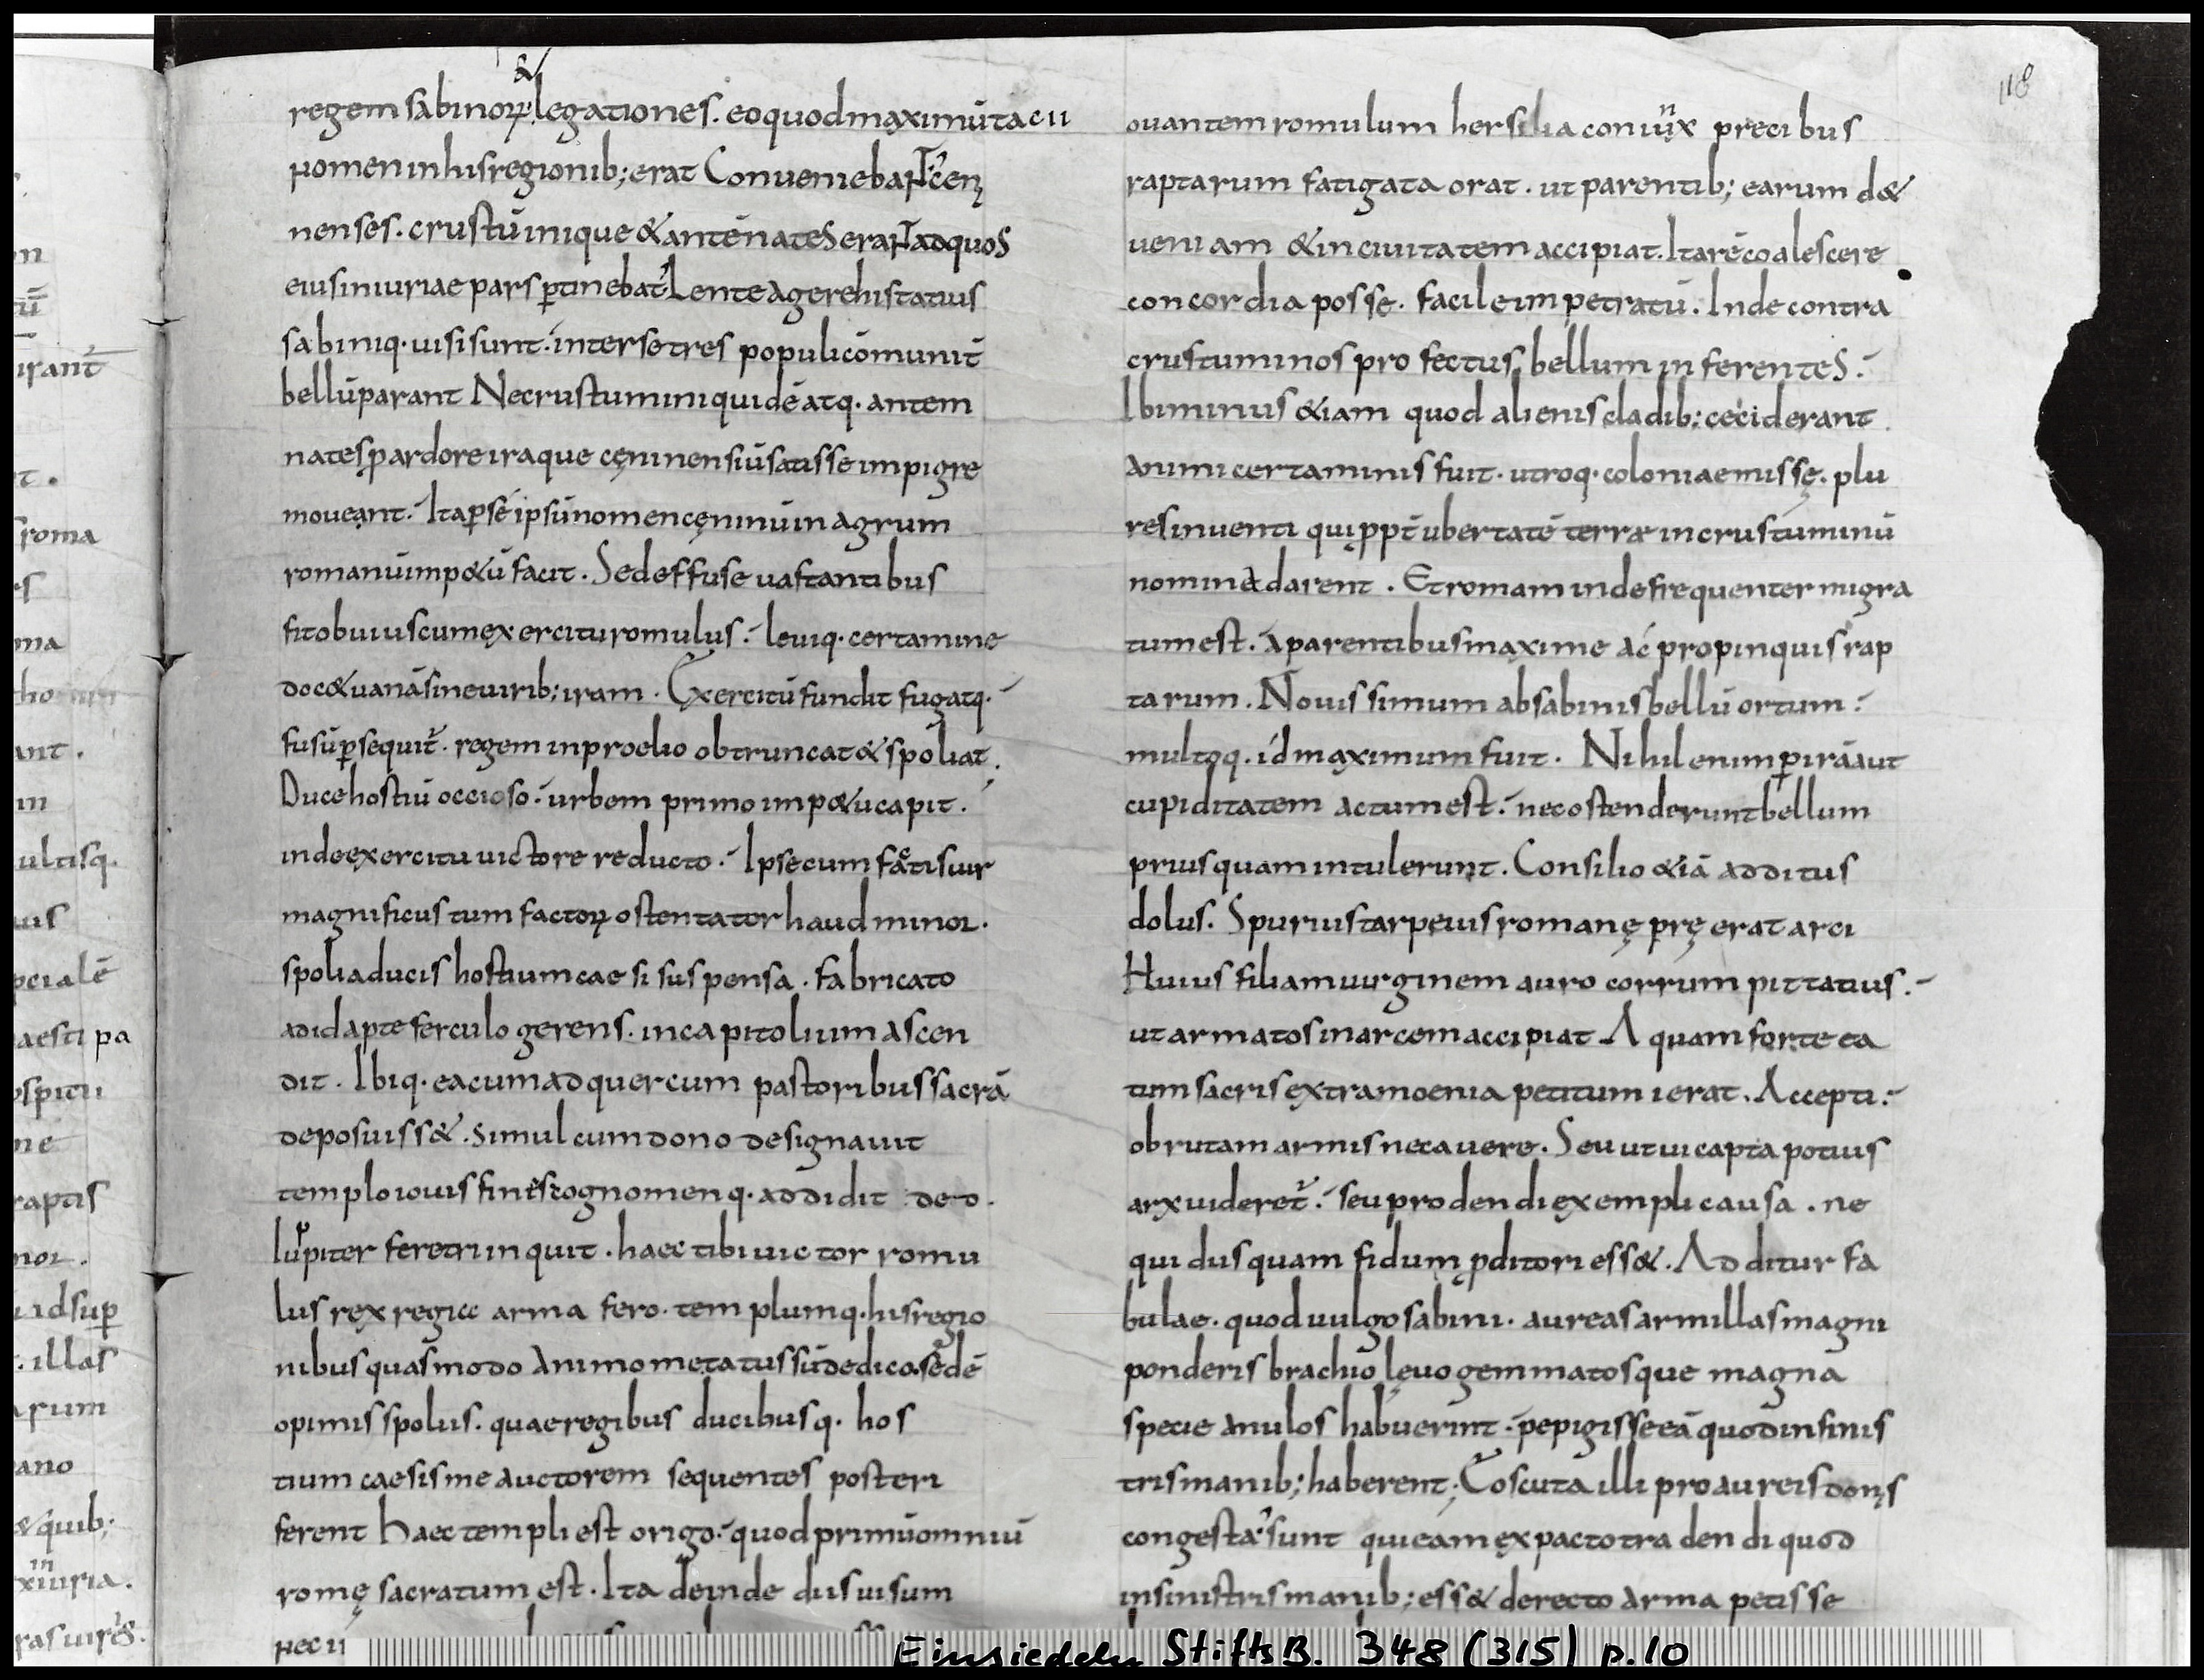 &
regem sabinoꝝ legationes. eo quod maximū tacii
nomen in his regionib; erat Conveniebant̉ cęn
nenses. crustūinique & antēnates erant ad quos
eius iniuriae pars ꝑtinebat̉ Lente agere his tatius
sabiniq. uisi sunt. inter se tres populi cōmunit̄
bellū parant Ne crustumini quidē atq. antem
nates ꝑ ardore iraque cęninensiū satis se impigre
moueant. Ita ꝑ se ipsū nomen cęninū in agrum
romanū imp&ū facit. Sed effuse uastantibus
fit obuius cum exercitu romulus. leuiq. certamine
doc& uanā sine uirib; iram. Exercitū fundit fugatq.
fusū ꝑsequit̉. regem in proelio obtruncat & spoliat.
Duce hostiū occioso. urbem primo imp&u capit.
inde exercitu uictore reducto. Ipse cum factis uir
magnificus tum factoꝝ ostentator haud minor.
spolia ducis hostium caesi suspensa. fabricato
ad id apte ferculo gerens. in capitolium ascen
dit. Ibiq. ea cum ad quercum pastoribus sacrā
deposuiss&. simul cum dono designauit
templo iouis fines cognomenq. addidit deo.
Iupiter feretri inquit. haec tibi uictor romu
lus rex regia arma fero. templumq. his regio
nibus quas modo animo metatus sū dedico. sedē
opimis spoliis. quae regibus ducibusq. hos
tium caesis me auctorem sequentes posteri
ferent Haec templi est origo. quod primū omniū
romę sacratum est. Ita deinde diis uisum
nec u
118
ouantem romulum hersilia coniunx precibus
raptarum fatigata orat. ut parentib; earum d&
ueniam & in ciuitatem accipiat. Ita rē coalescere
concordia posse. facile impetratū. Inde contra
crustuminos profectus bellum inferentes.
Ibi minus &iam quod alienis cladib; ceciderant
animi certaminis fuit. utroq. coloniae missę. plu
res inuenti qui ꝓpt̄ ubertatē terrae in crustuminū
nomina darent. Et romam inde frequenter migra
tum est. a parentibus maxime ac propinquis rap
tarum. Nouissimum ab sabinis bellū ortum.
multoq. id maximum fuit. Nihil enim ꝑ irā aut
cupiditatem actum est. nec ostenderunt bellum
prius quam intulerunt. Consilio &iā additus
dolus. Spurius tarpeius romanę pręerat arci
Huius filiam uirginem auro corrumpit tatius.
ut armatos in arcem accipiat Aquam forte ea
tum sacris extra moenia petitum ierat. Accepti.
obrutam armis necauere. Seu ut ui capta potius
arx uideret̉. seu prodendi exempli causa. ne
quid usquam fidum ꝓditori ess&. Additur fa
bulae. quod uulgo sabini. aureas armillas magni
ponderis brachio lęuo gemmatosque magna
specie anulos habuerint. pepigisse eā quod in sinis
tris manib; haberent; Eo scuta illi pro aureis donis
congesta sunt qui eam ex pacto tradendi quod
in sinistris manib; ess& derecto arma petisse
n
tū
irant̉
t.
roma
es
ma
ant.
in
ultisq.
uus
pcialē
aesti pa
ospitii
ne
raptis
nor.
idsuꝑ
. illas
arum
ano
& quib;
in
xiuria.
ras uir
Einsiedeln StiftsB. 348 (315) p.10